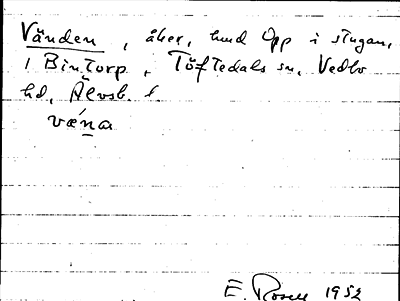 Vänden, åker, hmd Opp i stugan,
i Bintorp, Töftedals sn, Vedbo
hd, Älvsb. l
væna
E. Rosell 1952